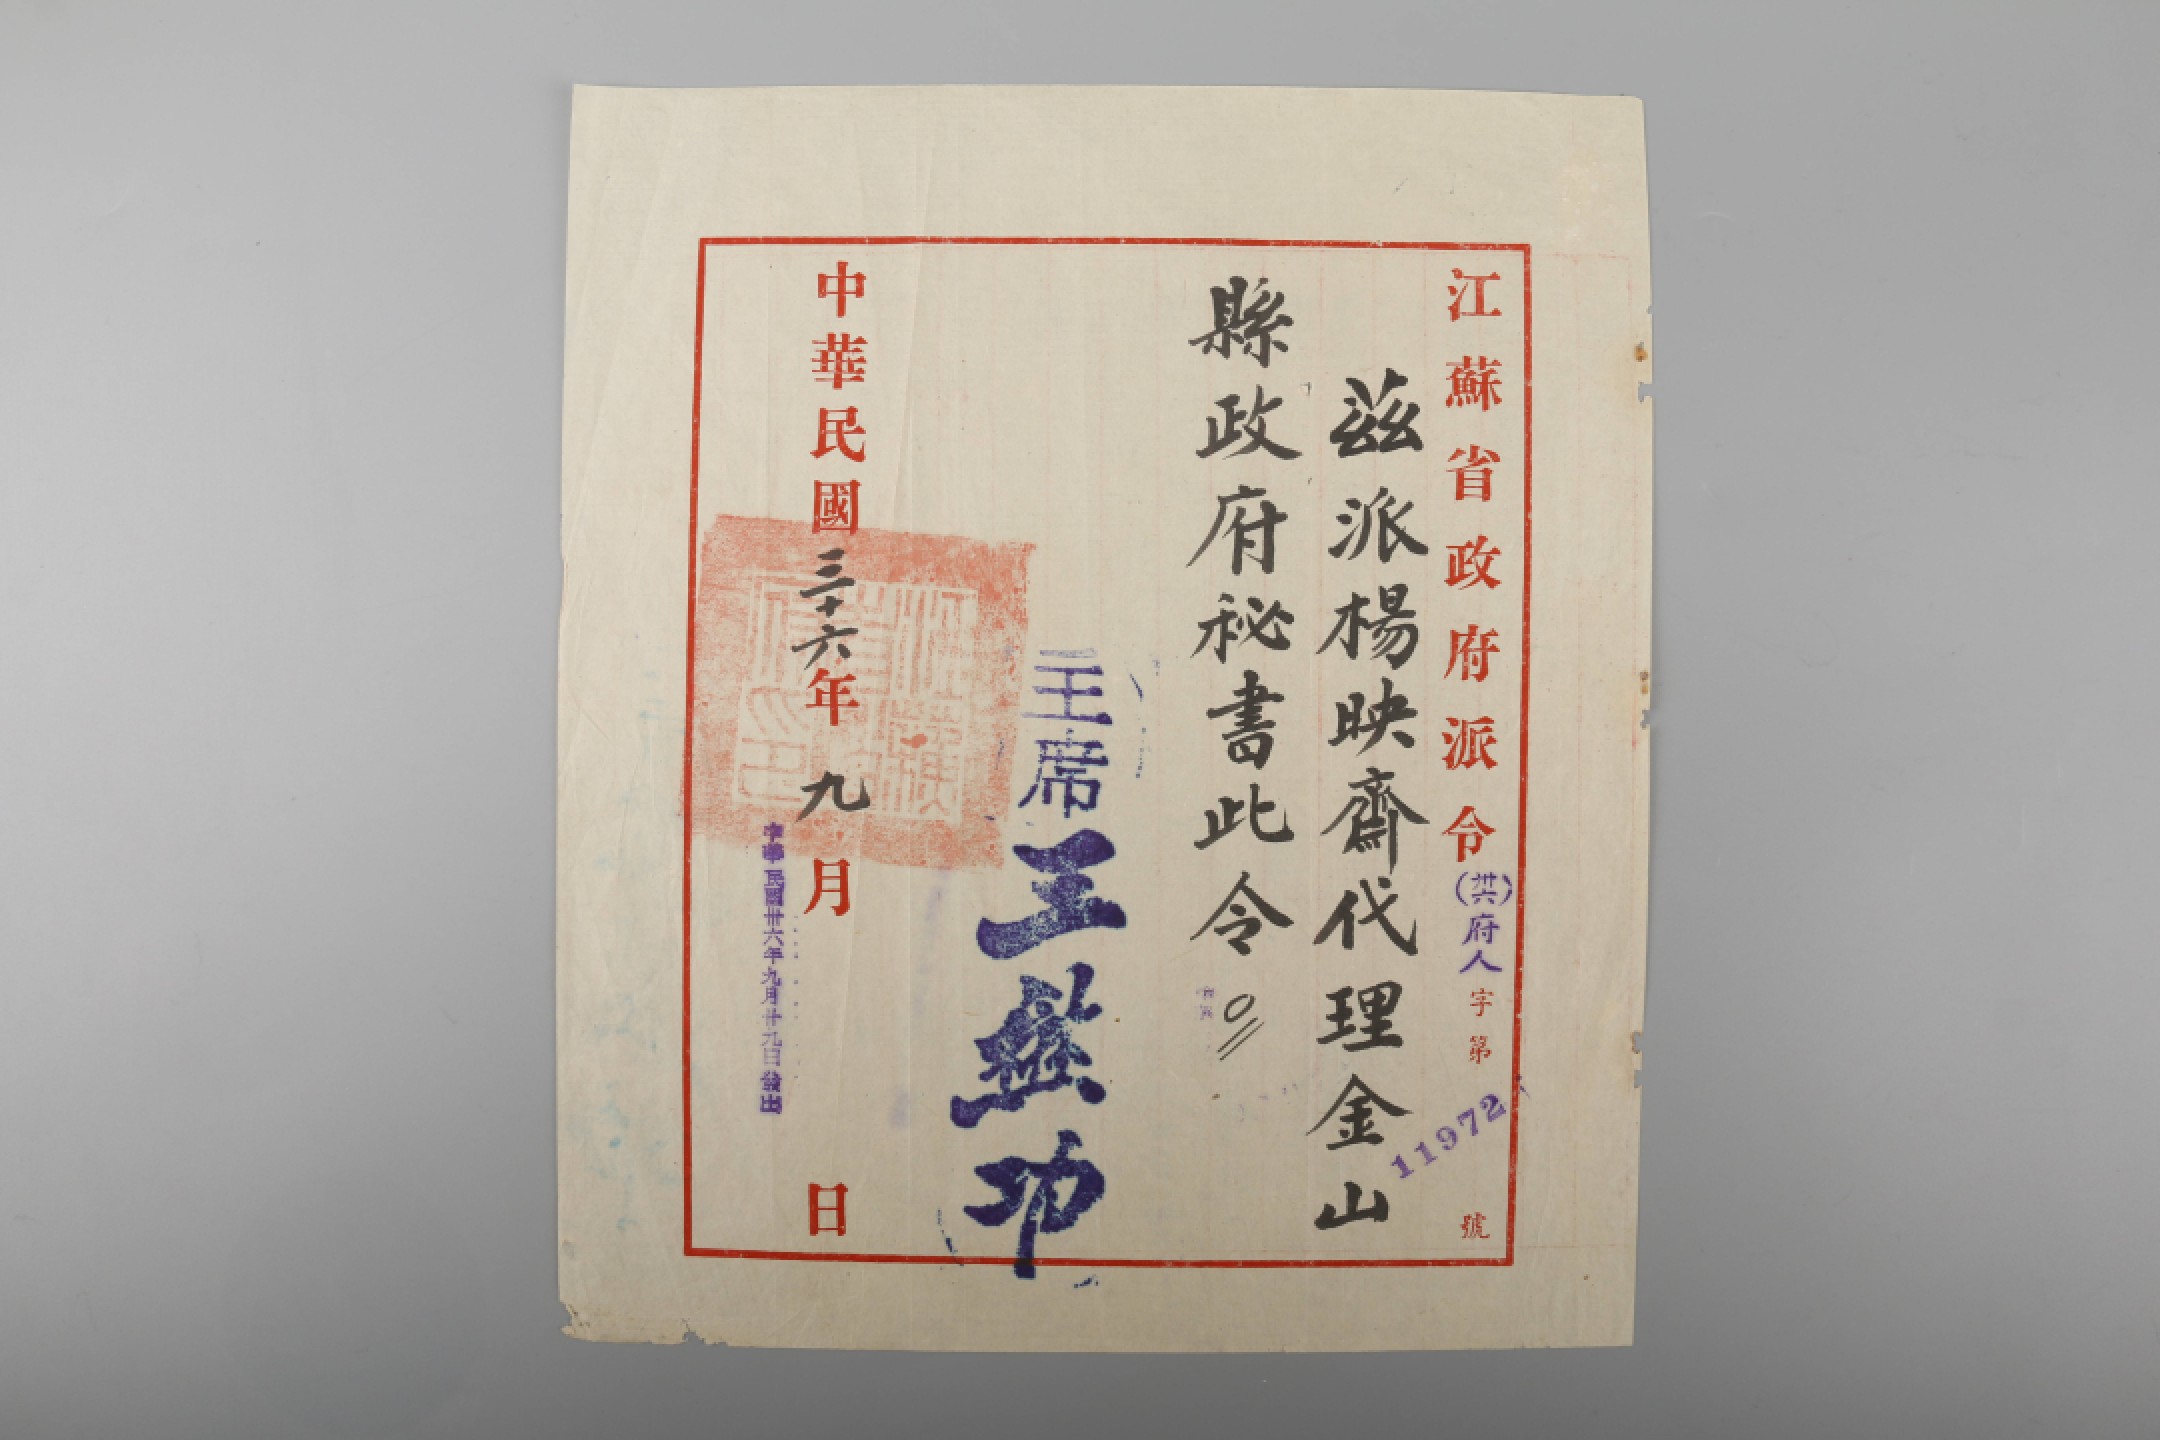 江蘇省政府派令(卅六)府人字第11972號
茲派楊映齋代理金山
縣政府秘書此令
主席王懋功
中華民國三十六年九月日
中華民國卅六年九月廿九日發出